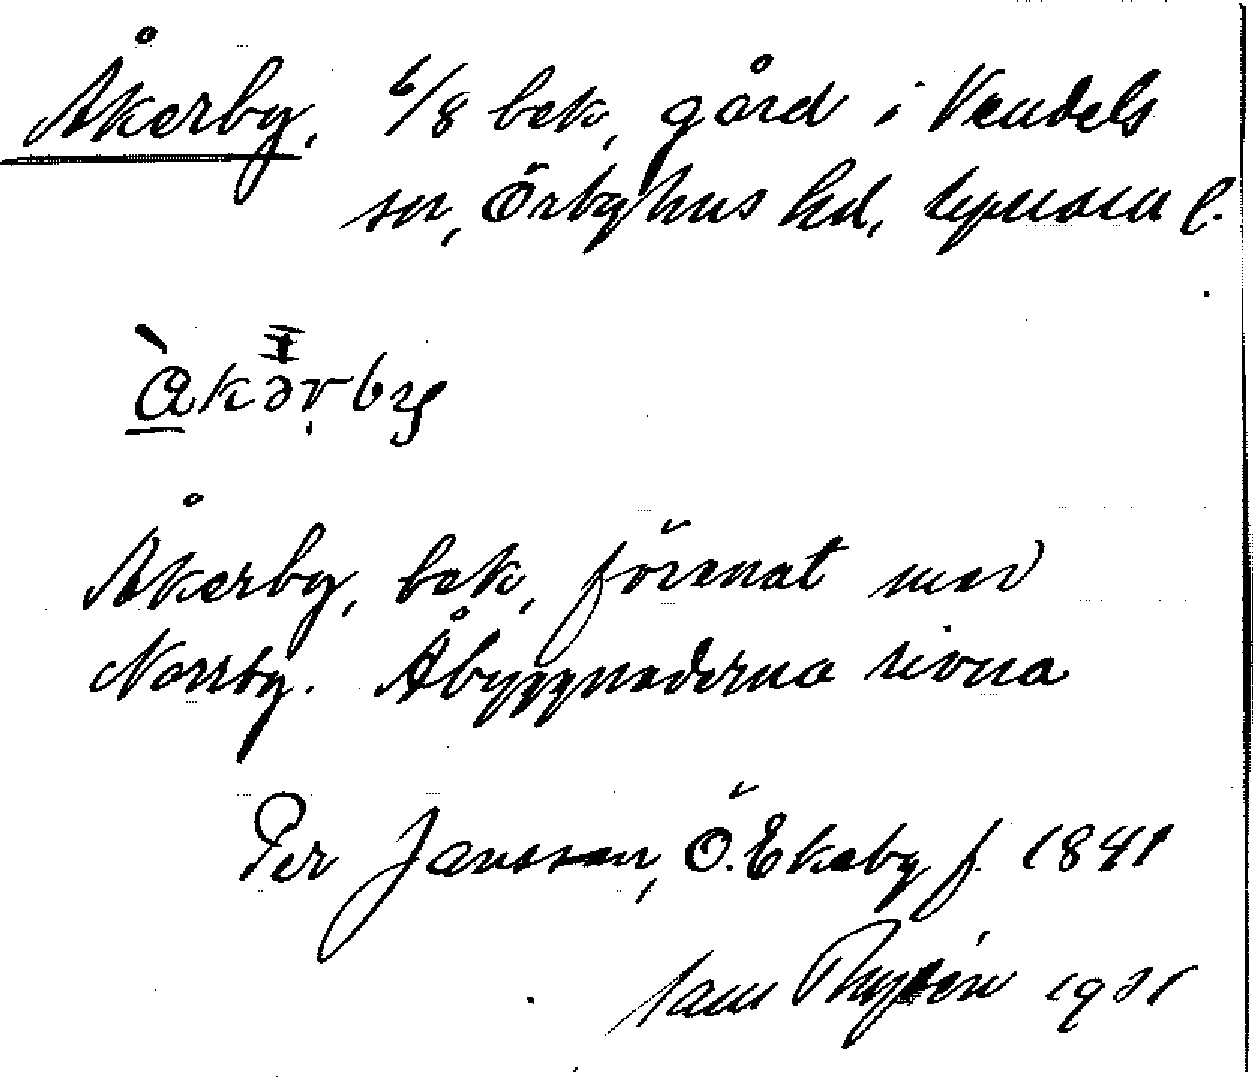 Åkerby, 6/8 bek, gård i Vendels
sn, Örbyhus hd, Uppsala l.
àkəṛby
Åkerby, bek, förenat med
Norrby. Åbyggnaderna rivna
Per Jansson, Ö. Ekeby f. 1841
1931